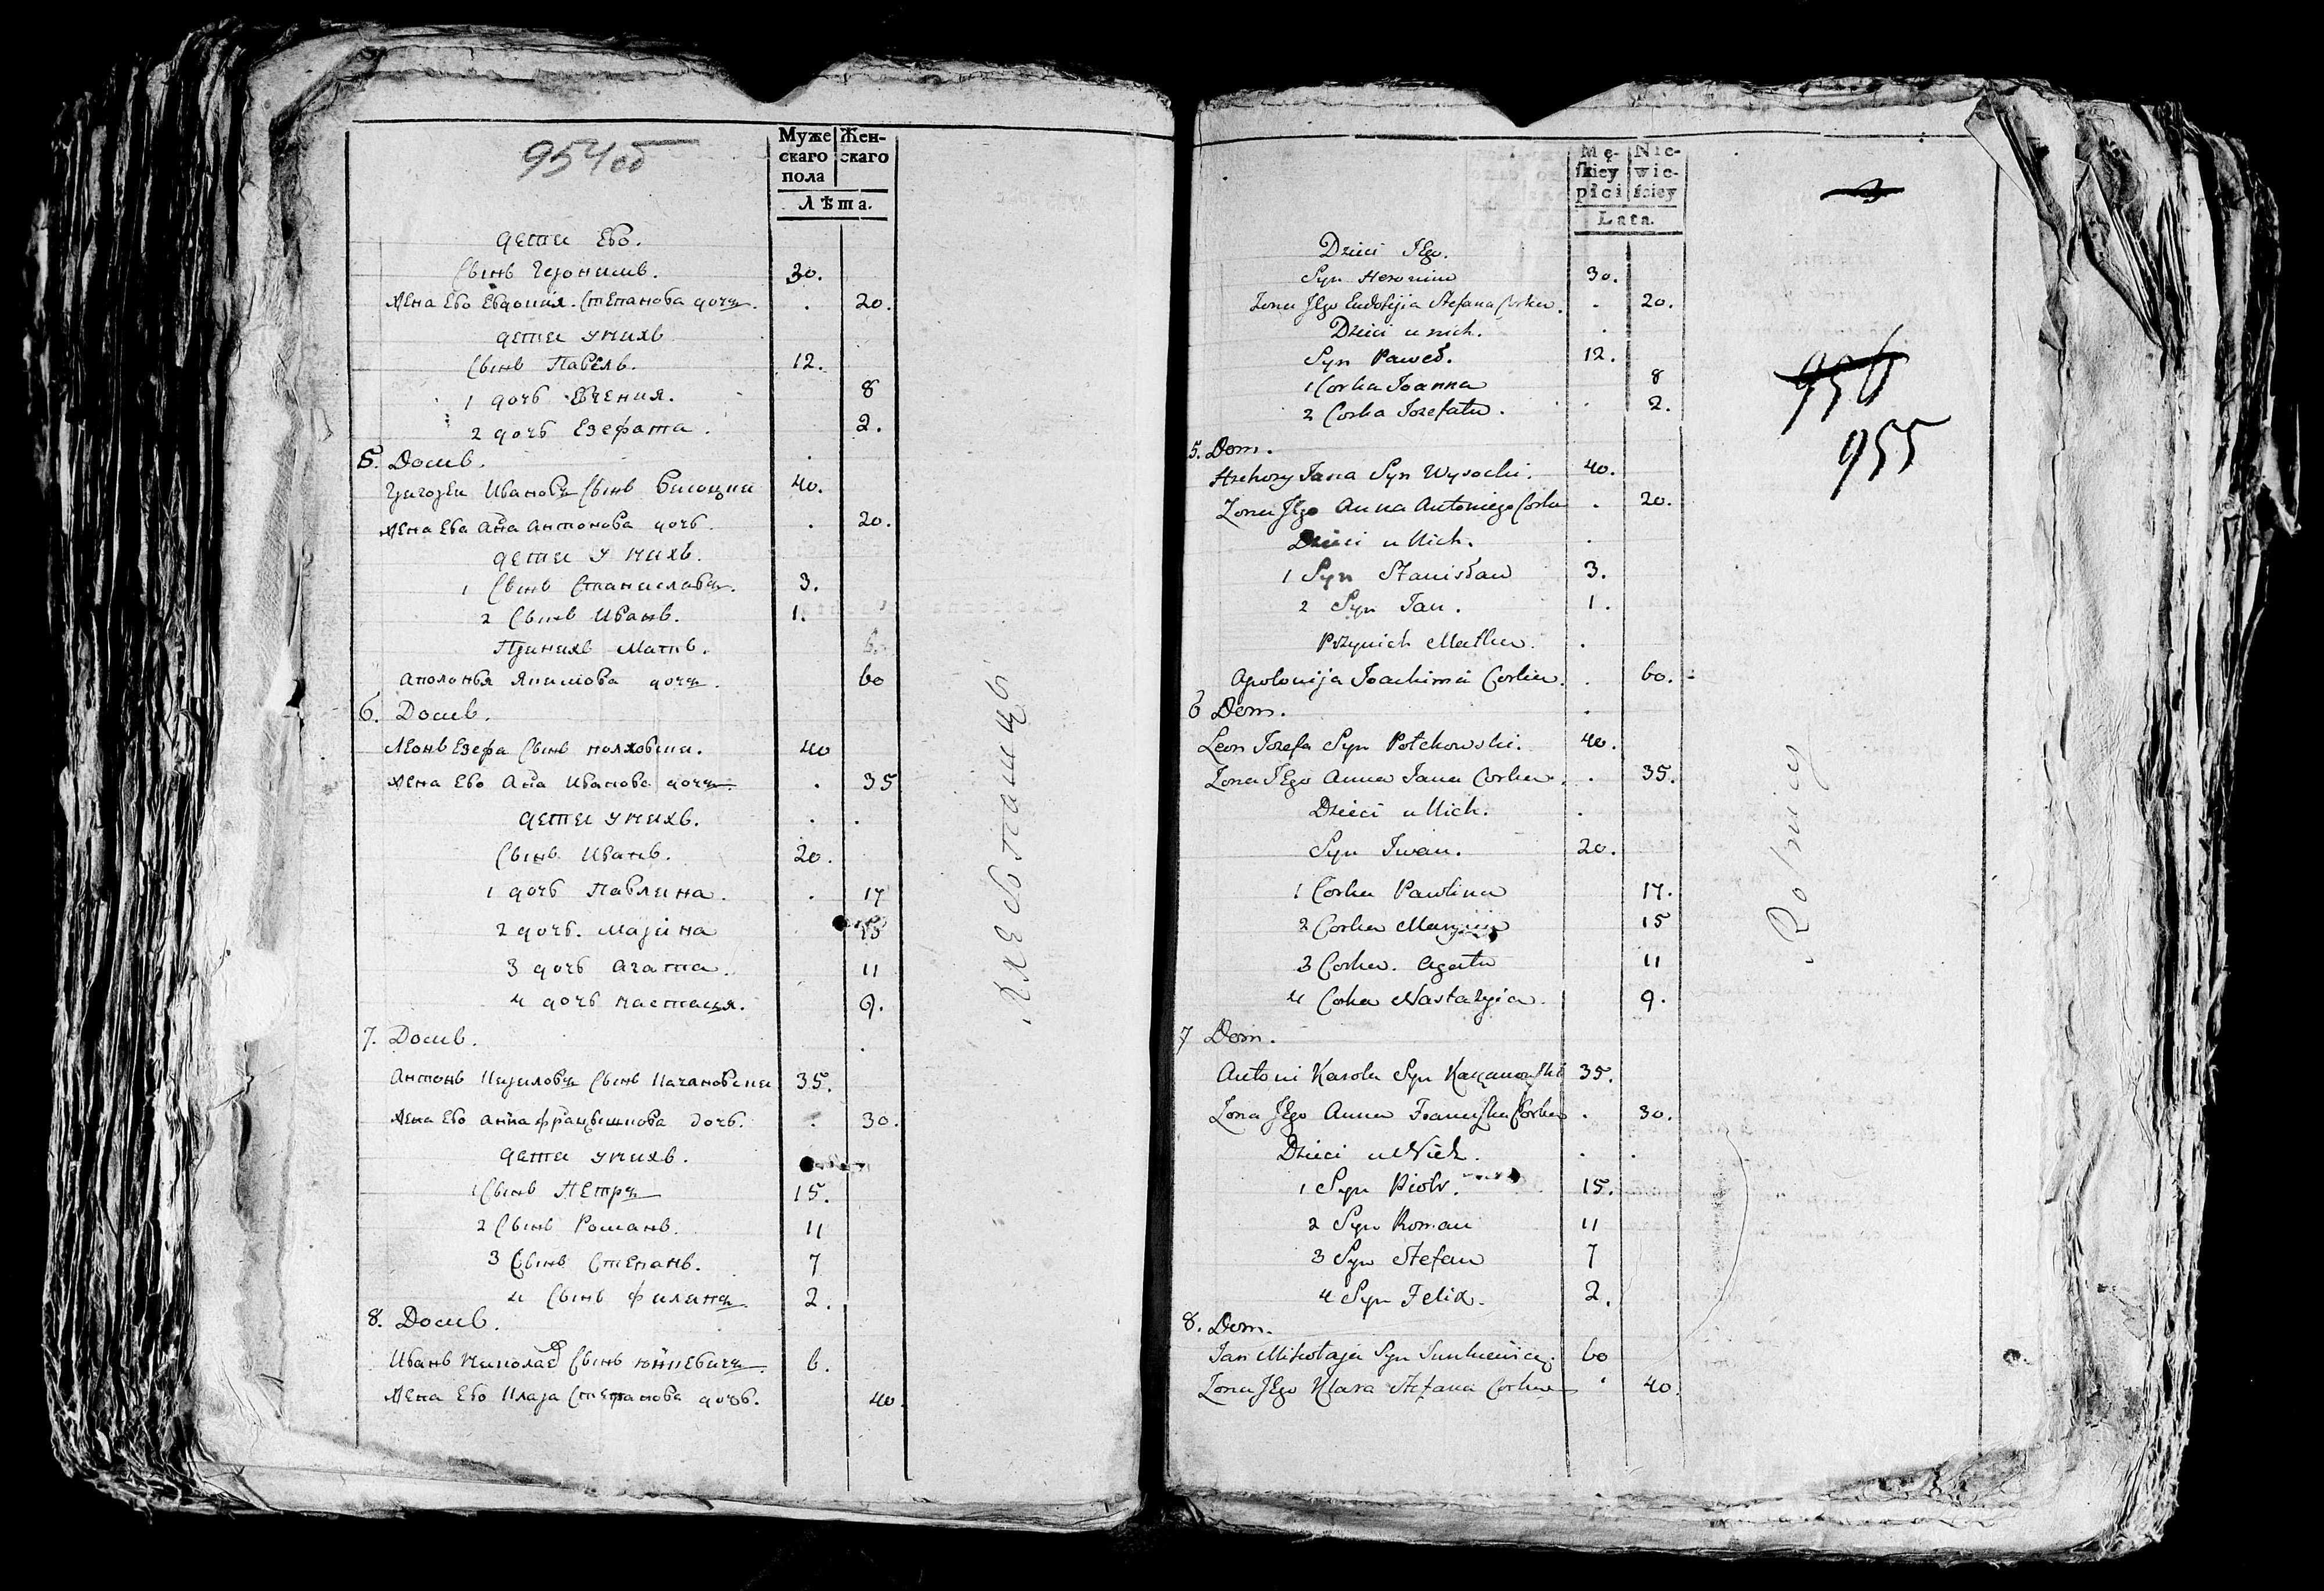 954об
Муже Жен-
скаго скаго
пола
Лѣта.
дети Ево.
Сынъ Геронимъ. 30.
Жена Ево Евдокия Степанова дочъ. . 20.
дети унихъ
Сынъ Павелъ. 12.
1 дочь Евгения. 8
2 дочь Езефата. 2.
5. Домъ.
Григореи Ивановъ Сынъ Висоцки 40.
Жена Ево Ана Антонова дочь. . 20.
дети унихъ.
1 Сынъ Станиславъ. 3.
2 Сынъ Иванъ. 1.
Принихъ Матъ.
Аполонья Якимова дочъ. 60
6. Домъ.
Леонъ Езефа Сынъ Полховски. 40
Жена Ево Ана Иванова дочъ. . 35
дети унихъ.
Сынъ Иванъ. 20.
1 дочь Павлина. . 17
2 дочь. Марина 15
3 дочь Агата. 11
4 дочь Настация. 9.
7. Домъ.
Антонъ Кариловъ Сынъ Качановски 35.
Жена Ево Анна Францышкова дочь. . 30.
дети унихъ.
1 Сынъ Петръ 15.
2 Сынъ Романъ. 11
3 Сынъ Степанъ. 7
4 Сынъ Филипъ 2.
8. Домъ.
Иванъ Николаев Сынъ Юнкевичъ. 6.
Жена Ево Клара Степанова дочь. 40.
Хлебопашцы
Mę- Nie-
skiey wie-
płci ściey
Lata.
3
956
955
Dzieci JEgo.
Syn Heronim 30.
Zona JEgo Eudokija Stefana Corka. . 20.
Dzieci u nich.
Syn Paweł. 12.
1 Corka Joanna 8
2 Corka Jozefata. . 2.
5. Dom.
Hrehory Jana Syn Wysocki. 40.
Zona JEgo Anna Antoniego Corka . 20.
Dzieci u Nich.
1 Syn Stanisław 3.
2 Syn Jan. 1.
Przynich Matka.
Apolonija Joachima Corka. . 60.
6 Dom.
Leon Jozefa Syn Połchowski. 40.
Zona JEgo Anna Jana Corka. . 35.
Dzieci u Nich.
Syn Iwan. 20.
1 Corka Pawlina 17.
2 Corka Maryna 15
3 Corka. Agata 11
4 Corka Nastazyia. 9.
7 Dom.
Antoni Karola Syn Kaczanowski 35.
Zona JEgo Anna Franciszka Corka . 30.
Dzieci u Nich.
1 Syn Piotr. 15.
2 Syn Roman 11
3 Syn Stefan 7
4 Syn Felix. 2.
8. Dom.
Jan Mikołaja Syn Junkiewicz. 60
Zona JEgo Klara Stefana Corka 40.
Rolnicy